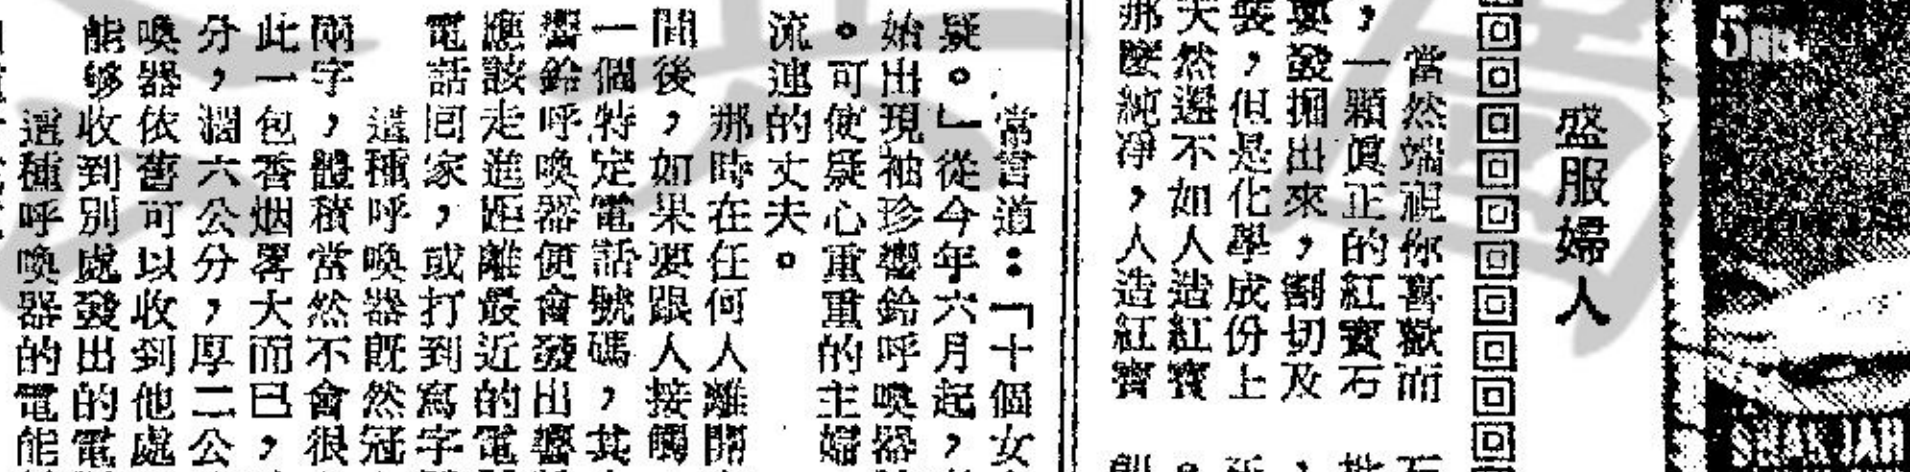 SHAH JAH
盛服婦人
當然端視你喜歡而
，一顆眞正的紅寶石
要發掘出來，割切及
裝，但是化學成份上
天然還不如人造紅寶
那麼純淨，人造紅寶
常言道：「十個女
疑。」從今年六月起，
始出現袖珍響鈴呼喚器
。可使疑心重重的主婦
流連的丈夫。
那時在任何人離開
間後，如果要跟人接觸
一個特定電話號碼，其
響鈴呼喚器便會發出響
應該走進距離最近的電
電話囘家，或打到寫字
這種呼喚器既然冠
兩字，體積當然不會很
此一包香烟畧大而已，
分，濶六公分，厚二公
喚器依舊可以收到他處
能够收到別處發出的電
這種呼喚器的電能